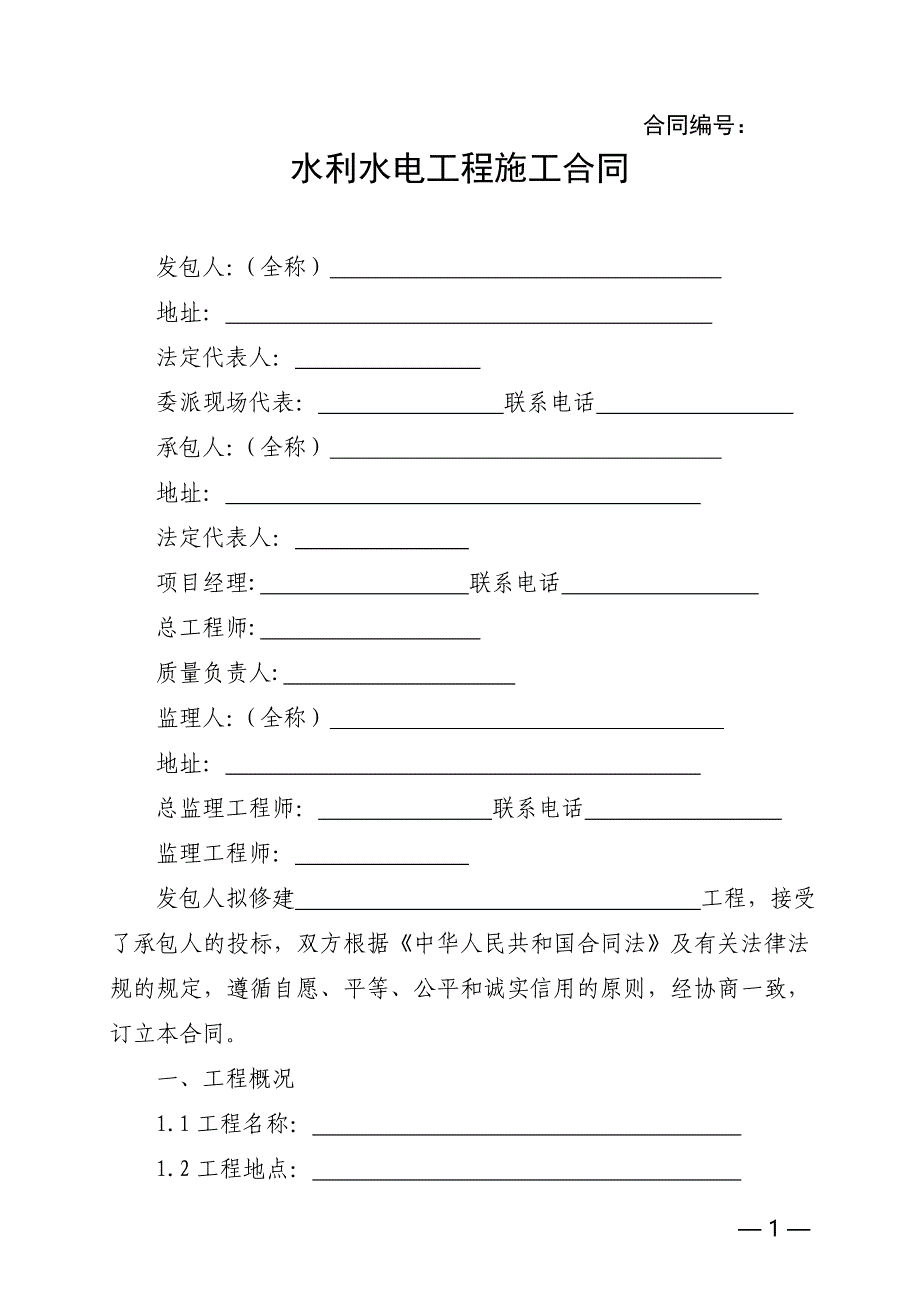 合同编号：
水利水电工程施工合同
发包人：（全称）__________________________________
地址：__________________________________________
法定代表人：________________
委派现场代表：________________联系电话_________________
承包人：（全称）__________________________________
地址：_________________________________________
法定代表人：_______________
项目经理：__________________联系电话_________________
总工程师：___________________
质量负责人：____________________
监理人：（全称）__________________________________
地址：_________________________________________
总监理工程师：_______________联系电话_________________
监理工程师：_______________
发包人拟修建___________________________________工程，接受
了承包人的投标，双方根据《中华人民共和国合同法》及有关法律法
规的规定，遵循自愿、平等、公平和诚实信用的原则，经协商一致，
订立本合同。
一、工程概况
1.1 工程名称：_____________________________________
1.2 工程地点：_____________________________________
— 1 —